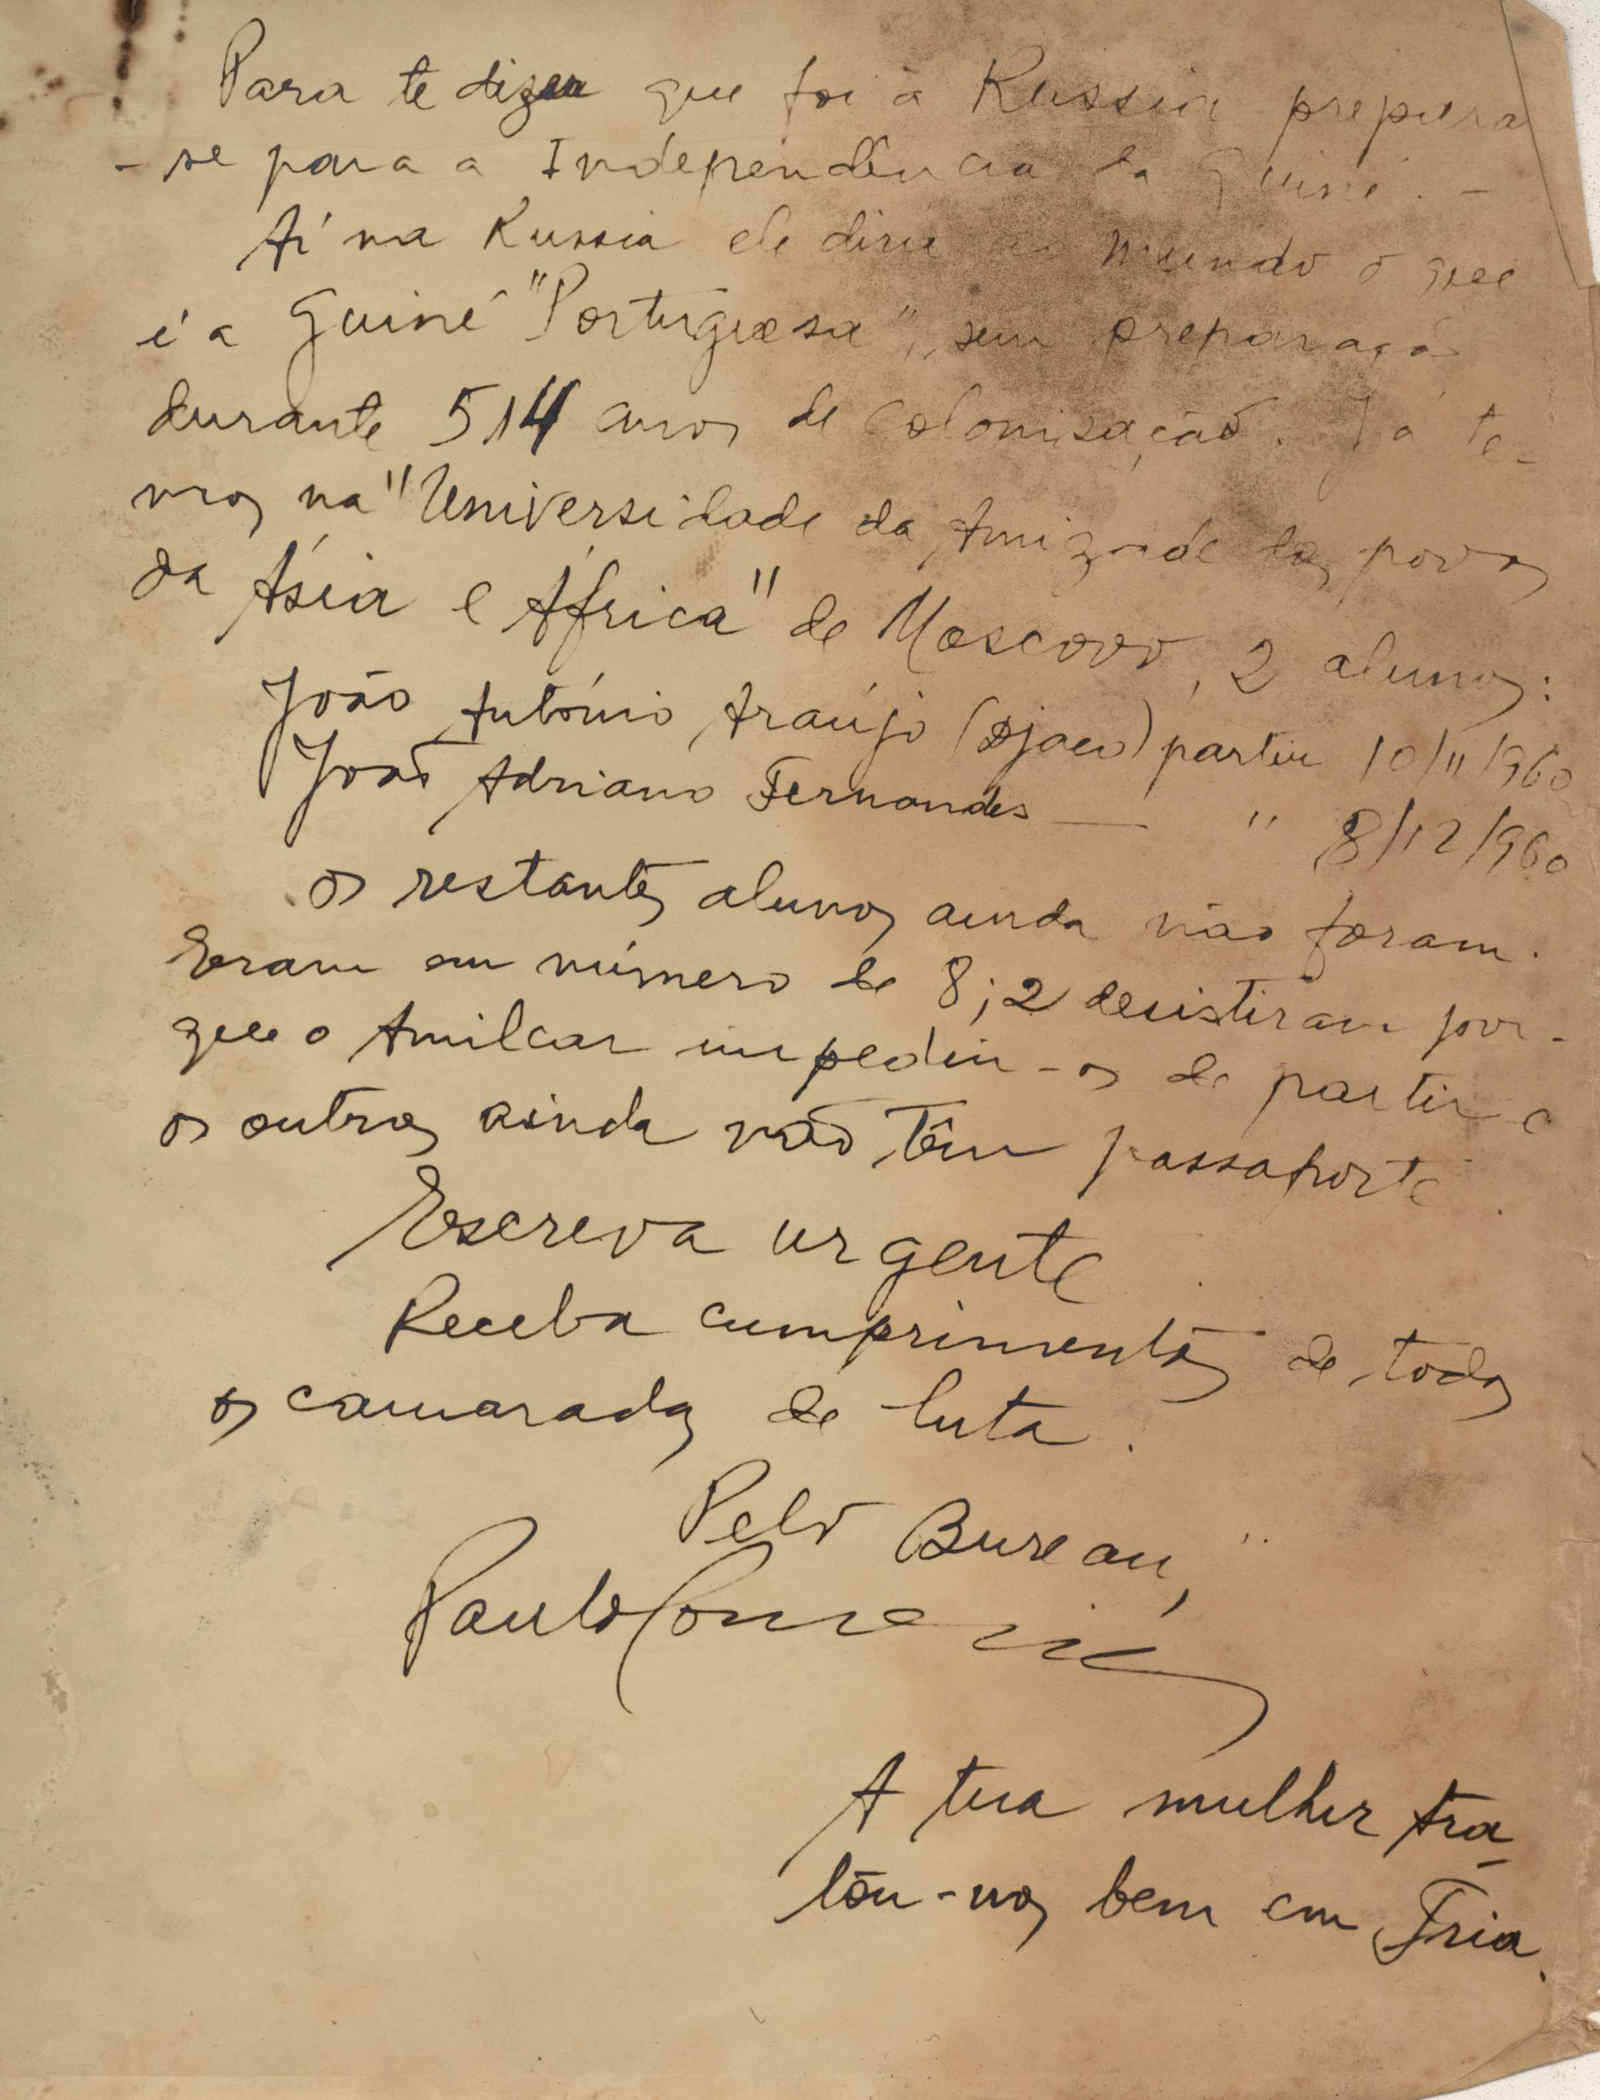 Para te dizer que foi à Russia prepara
-se para a Independência da Guiné. -
Aí na Russia ele dirá ao mundo o que
é a Guiné "Portuguesa", sem preparação
durante 514 anos de colonisação. Já te-
mos na "Universidade da Amizade dos povos
da Ásia e África" de Moscovo, 2 alunos:
João António Araújo (Djaco) partiu 10/11/960
João Adriano Fernandes — " 8/12/960
os restantes alunos ainda não foram.
Eram em número de 8; 2 desistiram por-
que o Amilcar impediu-os de partir e
os outros ainda não têm passaporte.
Escreva urgente
Receba cumprimentos de todos
os camaradas de luta.
Pelo Bureau,
Paulo
A tua mulher tra-
tou-nos bem em Fria.